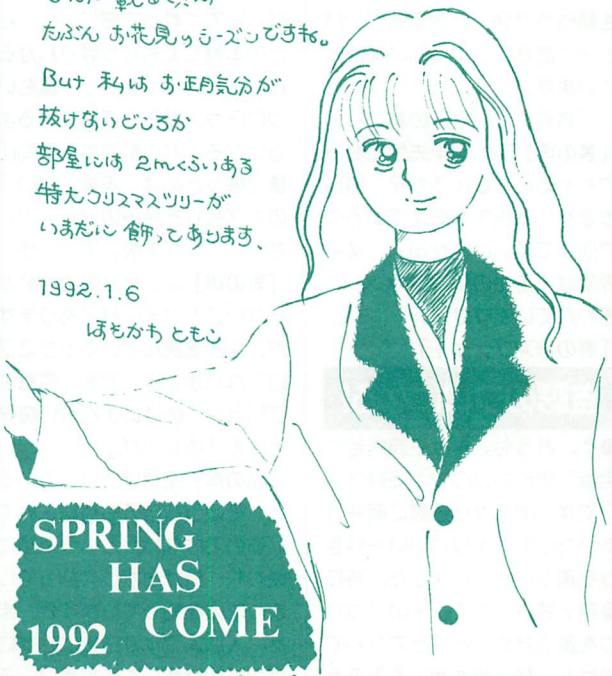 たぶん お花見のシーズンですね。
But 私は お正月気分が
抜けないどころか
部屋には 2mくらいある
特大クリスマスツリーが
いまだに 飾ってあります、
1992.1.6
ほもかわ ともこ
SPRING
HAS
COME
1992